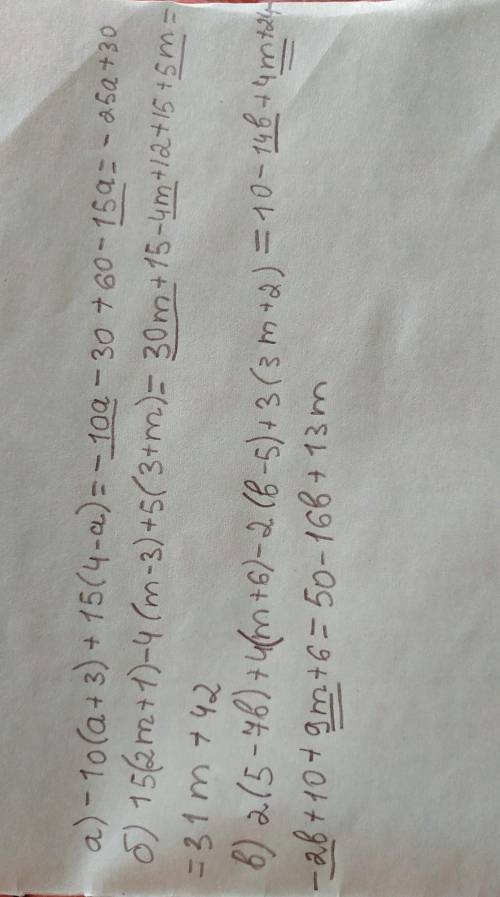 а) -10(a+3)+15(4-a)=-10a-30+60-15a=-25a+30
б) 15(2m+1)-4(m-3)+5(3+m)=30m+15-4m+12+15+5m=
=31m+42
в) 2(5-7b)+4(m+6)-2(b-5)+3(3m+2)=10-14b+4m+24-
-2b+10+9m+6=50-16b+13m